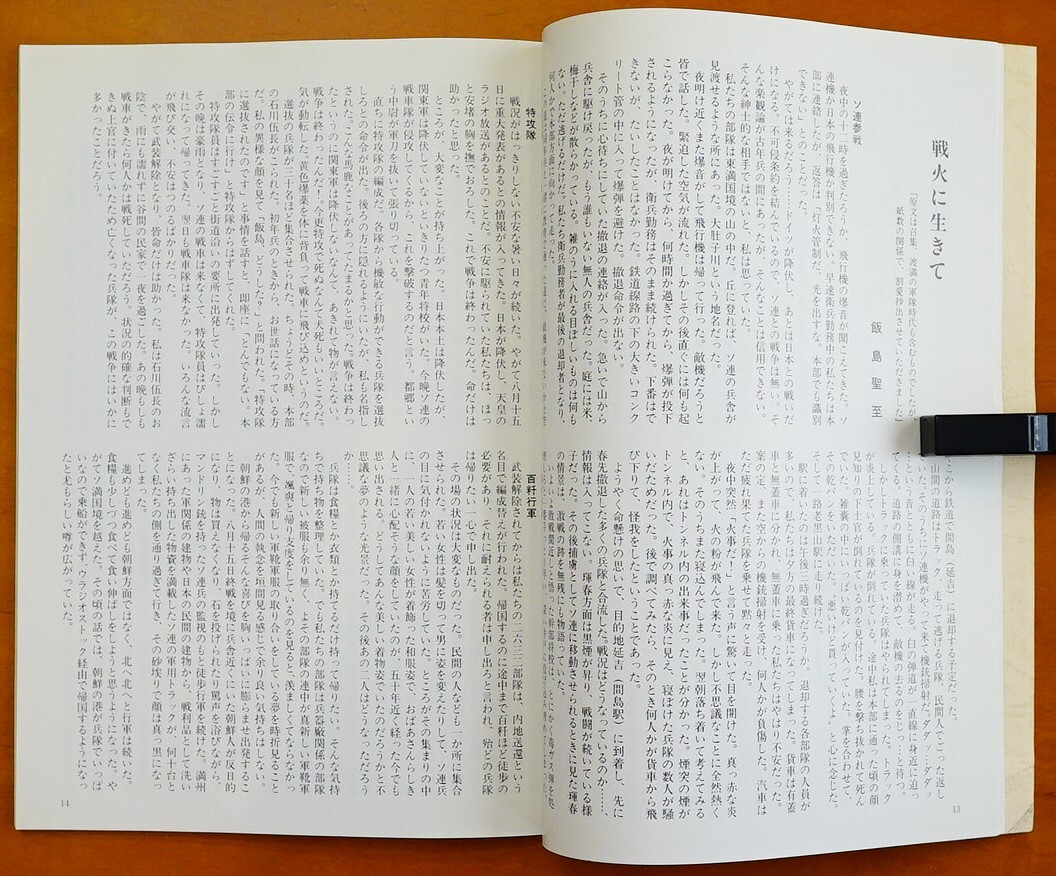 戦火に生きて
〔原文は召集、渡満の軍隊時代も含むものでしたが
紙数の関係で、割愛抄出させていただきました〕
飯島聖至
ソ連参戦
夜中の十二時を過ぎたころか、飛行機の爆音が聞こえてきた。ソ
連機か日本の飛行機か判別できない。早速衛兵勤務中の私たちは本
部に連絡したが、返答は「灯火管制だ、光を出すな、本部でも識別
できない」とのことだった。
やがては来るだろう……ドイツが降伏し、あとは日本との戦いだ
けになる。不可侵条約を結んでいるので、ソ連との戦争は無い。そ
んな楽観論が古年兵の間にあったが、そんなことは信用できない。
そんな紳士的な相手ではないと、私は思っていた。
私たちの部隊は東満国境の山の中だ。丘に登れば、ソ連の兵舎が
見渡せるような所にあった。大肚子川という地名だった。
夜明け近くまた爆音がして飛行機は帰って行った。敵機だろうと
皆で話した。緊迫した空気が流れた。しかしその後直ぐには何も起
こらなかった。夜が明けてから、何時間か過ぎてから、爆弾が投下
されるようになったが、衛兵勤務はそのまま続けられた。下番はで
きないが、たいしたことはなかった。鉄道線路の下の大きいコンク
リート管の中に入って爆弾を避けた。撤退命令が出ない。
そのうちに心待ちにしていた撤退の連絡が入った。急いで山から
兵舎に駆け戻ったが、もう誰もいない無人の兵舎だった。庭には米、
梅干しなどが散らかっている。雑のうに入れる目ぼしいものは何も
ない。ただ逃げるだけだ。私たち衛兵勤務者が最後の退却者となり、
何人かで本部方面に向かって走った。
こから鉄道で間島（延吉）に退却する予定だった。
山間の鉄道路はトラックで、走って逃げる兵隊、民間人でごった返し
駅に着いたのは午後三時過ぎだろうか。退却する各部隊の人員が
多いので、私たちは夕方の最終貨車になってしまった。貨車は有蓋
車と無蓋車に分かれ、無蓋車に乗った私たちはやはり不安だった。
案の定、また空からの機銃掃射を受け、何人かが負傷した。汽車は
ただ疲れ果てた兵隊を乗せて黙々と走った。
夜中突然「火事だ！」と言う声に驚いて目を開けた。真っ赤な炎
が上がって、火の粉が飛んで来た。しかし不思議なことに全然熱く
ない。そのうちまた寝込んでしまった。翌朝落ち着いて考えてみる
と、あれはトンネル内の出来事だったことが分かった。煙突の煙が
トンネル内で、火事の真っ赤な炎に見え、寝ぼけた兵隊の数人が騒
いだためだった。後で調べてみたら、そのとき何人かが貨車から飛
び下りて、怪我をしたということで大変だった。
ようやく命懸けの思いで、目的地延吉（間島駅）に到着し、先に
春先撤退した多くの兵隊と合流した。戦況はどうなっているのか……、
情報は入ってこない。琿春方面は黒煙が昇り、戦闘が続いている様
子だった。その後捕虜としてソ連に移動させられるときに見た琿春
の情景は、激戦の跡を無残にも物語っていた。
13
特攻隊
戦況がはっきりしない不安な暑い日々が続いた。やがて八月十五
日に重大発表があるとの情報が入ってきた。日本が降伏し、天皇の
ラジオ放送があるとのことだ。不安に駆られていた私たちは、ほっ
と安堵の胸を撫でおろした。これで戦争は終わったんだ。命だけは
助かったと思った。
ところが、大変なことが持ち上がった。日本本土は降伏したが、
関東軍は降伏していないといきりたつ青年将校がいた。今晩ソ連の
戦車隊が侵攻してくるから、これを撃破するのだと言う。都郷とい
う中尉が軍刀を抜いて張り切っている。
直ちに特攻隊の編成だ。各隊から機敏な行動ができる兵隊を選抜
しろとの命令が出た。後ろの方に隠れるようにいたが、私も名指し
された。こんな馬鹿なことがあってたまるかと思った。戦争は終わっ
たというのに関東軍は降伏しないなんて、あきれて物が言えない。
戦争は終わったんだ！今更特攻で死ぬなんて犬死もいいところだ。
気が動転した。黄色爆薬を体に背負って戦車に飛び込めというのだ。
選抜の兵隊が三十名ほど集合させられた。ちょうどその時、本部
の石川伍長がこられた。初年兵のときから、お世話になっている方
だ。私の異様な顔を見て「飯島、どうした？」と問われた。特攻隊
に選抜されたのです」と事情を話すと、即座に「とんでもない。本
部の伝令に行け」と特攻隊からはずしてくれた。
特攻隊員はすごすごと街道沿いの要所に出発していった。しかし
その晩は豪雨となり、ソ連の戦車は来なくて、特攻隊員はびしょ濡
れになって帰ってきた。翌日も戦車隊は来なかった。いろんな流言
が飛び交い、不安はつのるばかりだった。
やがて武装解除となり、皆命だけは助かった。私は石川伍長のお
陰で、雨にも濡れずに谷間の民家で一夜を過ごした。あの晩もしも
戦車がきたら何人かは戦死していただろう。状況の的確な判断もで
きぬ上官に付いていたため亡くなった兵隊が、この戦争にはいかに
多かったことだろう。
百粁行軍
武装解除されてからは私たちの二六三三部隊は、内地送還という
名目で編成替えが行われた。帰国するのに途中まで百粁ほど徒歩の
必要があり、それに耐えられる者は申し出ろと言われ、殆どの兵隊
は帰りたい一心で申し出た。
その場の状況は大変なものだった。民間の人なども一か所に集合
させられた。若い女性は髪を切って男に姿を変えたりして、ソ連兵
の目に気付かれないように苦労していた。ところがその集まりの中
に、一人の若い美しい女性が着飾った和服姿で、おばあさんらしき
人と一緒に心配そうな顔をしていたのが、五十年近く経った今でも
思い出される。どうしてあんな美しい着物姿でいたのだろうか不
思議な夢のような光景だった。その後あの二人はどうなっただろう
か……
兵隊は食糧とか衣類とか持てるだけ持って帰りたい。そんな気持
ちで持ち物を整理していた。でも私たちの部隊は兵器廠関係の部隊
なので新しい被服も余り無く、よその部隊の連中が真新しい軍靴軍
服で、颯爽と帰り支度をしているのを見ると、羨ましくてならなかっ
た。今でも新しい軍靴軍服の取り合いをしている夢を時折見ること
があるが、人間の執念を垣間見る感じで余り良い気持ちはしない。
朝鮮の港から帰るそんな喜びを胸いっぱいに膨らませ出発するこ
とになった。八月十五日終戦を境に兵舎近くにいた朝鮮人が反日的
になり、物は買えなくなり、石を投げられたり罵声を浴びながら、
マンドリン銃を持ったソ連兵の監視のもと徒歩行軍を続けた。満州
にあった軍関係の建物や日本の民間の建物から、戦利品として洗い
ざらい持ち出した物資を満載したソ連の軍用トラックが、何十台と
なく私たちの側を通り過ぎて行き、その砂埃りで顔は真っ黒になっ
てしまった。
進めども進めども朝鮮方面ではなく、北へ北へと行軍は続いた。
食糧も少しずつ食べて食い伸ばしをしようと思うようになった。や
がてソ満国境を越えた。その頃の話では、朝鮮の港が兵隊でいっぱ
いなので乗船ができず、ウラジオストック経由で帰国するようになっ
たと尤もらしい噂が広がっていた。
14